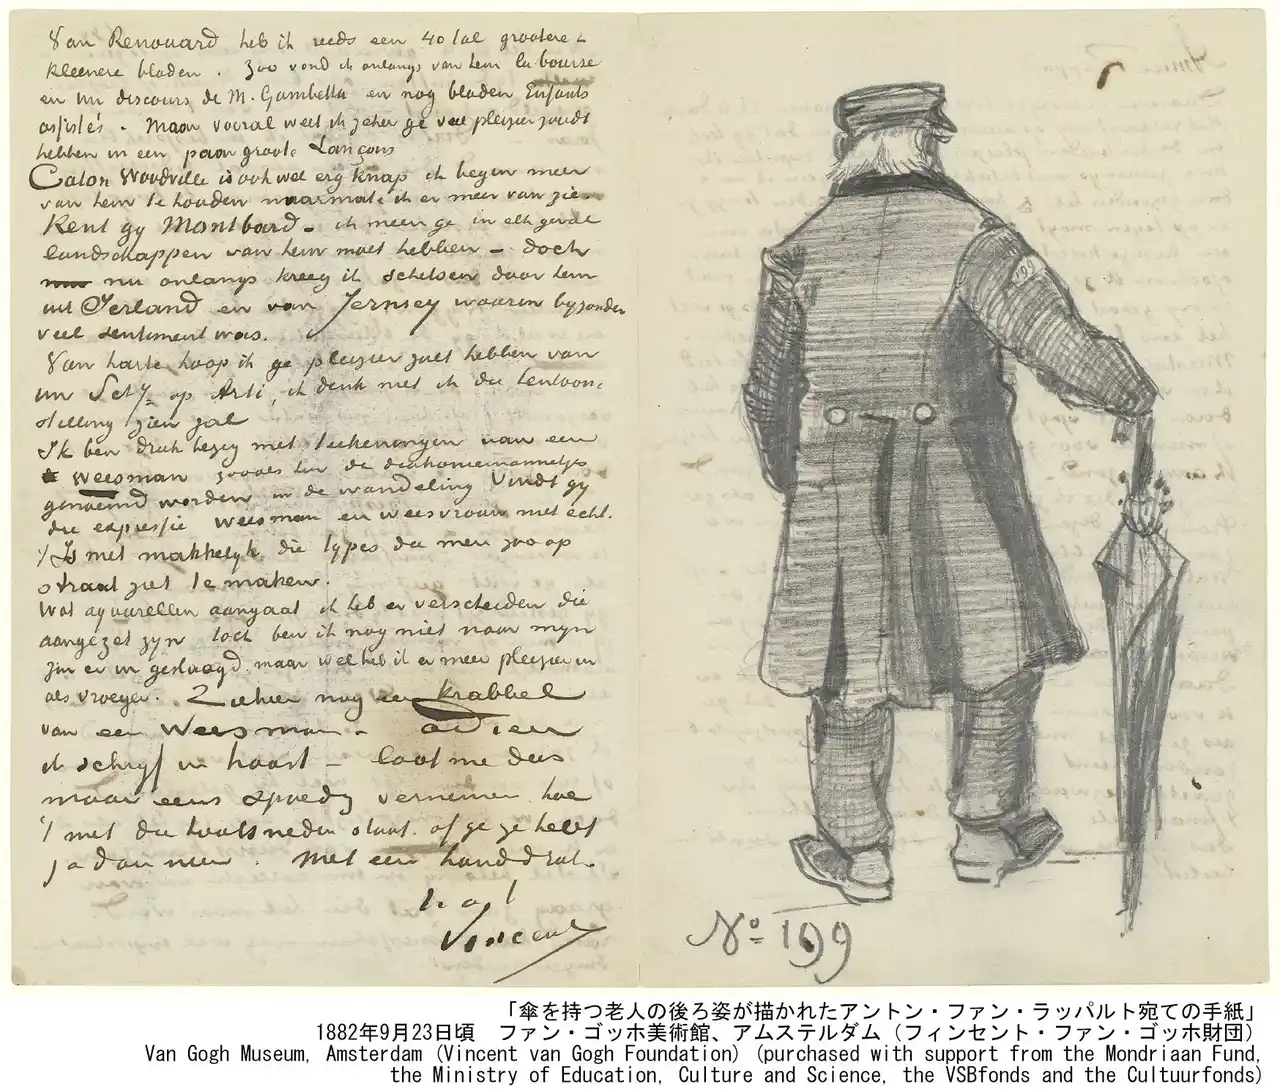 Van Renouard heb ik reeds een 40 tal grootere &
kleinere bladen. Zoo vond ik onlangs van hem la bourse
en un discours de M. Gambetta en nog bladen Enfants
assistés. Maar vooral weet ik zeker ge veel pleizier zoudt
hebben in een paar groote Lançons
Caton Woodville is ook wel erg knap ik begin meer
van hem te houden naarmate ik er meer van zie.
Kent gy Montbard – ik meen ge in elk geval
landschappen van hem moet hebben – doch
nu onlangs kreeg ik schetsen door hem
uit Ierland en van Jersey waarin byzonder
veel sentiment was.
Van harte hoop ik ge pleizier zult hebben van
uw Schy op Arti, ik denk niet ik die tentoon-
stelling zien zal
Ik ben druk bezig met teekeningen van een
weesman zooals hier de diakoniemannetjes
genoemd worden in de wandeling Vindt gy
die expressie weesman en weesvrouw niet echt.
't Is niet makkelyk die types die men zoo op
straat ziet te maken.
Wat aquarellen aangaat ik heb er verscheiden die
aangezet zyn toch ben ik nog niet naar myn
zin er in geslaagd maar wel heb ik er meer pleizier in
als vroeger. Ziehier nog een krabbel
van een weesman. adieu
ik schryf in haast – laat me dus
maar eens spoedig vernemen hoe
't met die houtsneden staat. of ge ze hebt
ja dan neen. Met een handdruk
t. à t.
Vincent
199
No 199
「傘を持つ老人の後ろ姿が描かれたアントン・ファン・ラッパルト宛ての手紙」
1882年9月23日頃　ファン・ゴッホ美術館、アムステルダム（フィンセント・ファン・ゴッホ財団）
Van Gogh Museum, Amsterdam (Vincent van Gogh Foundation) (purchased with support from the Mondriaan Fund,
the Ministry of Education, Culture and Science, the VSBfonds and the Cultuurfonds)